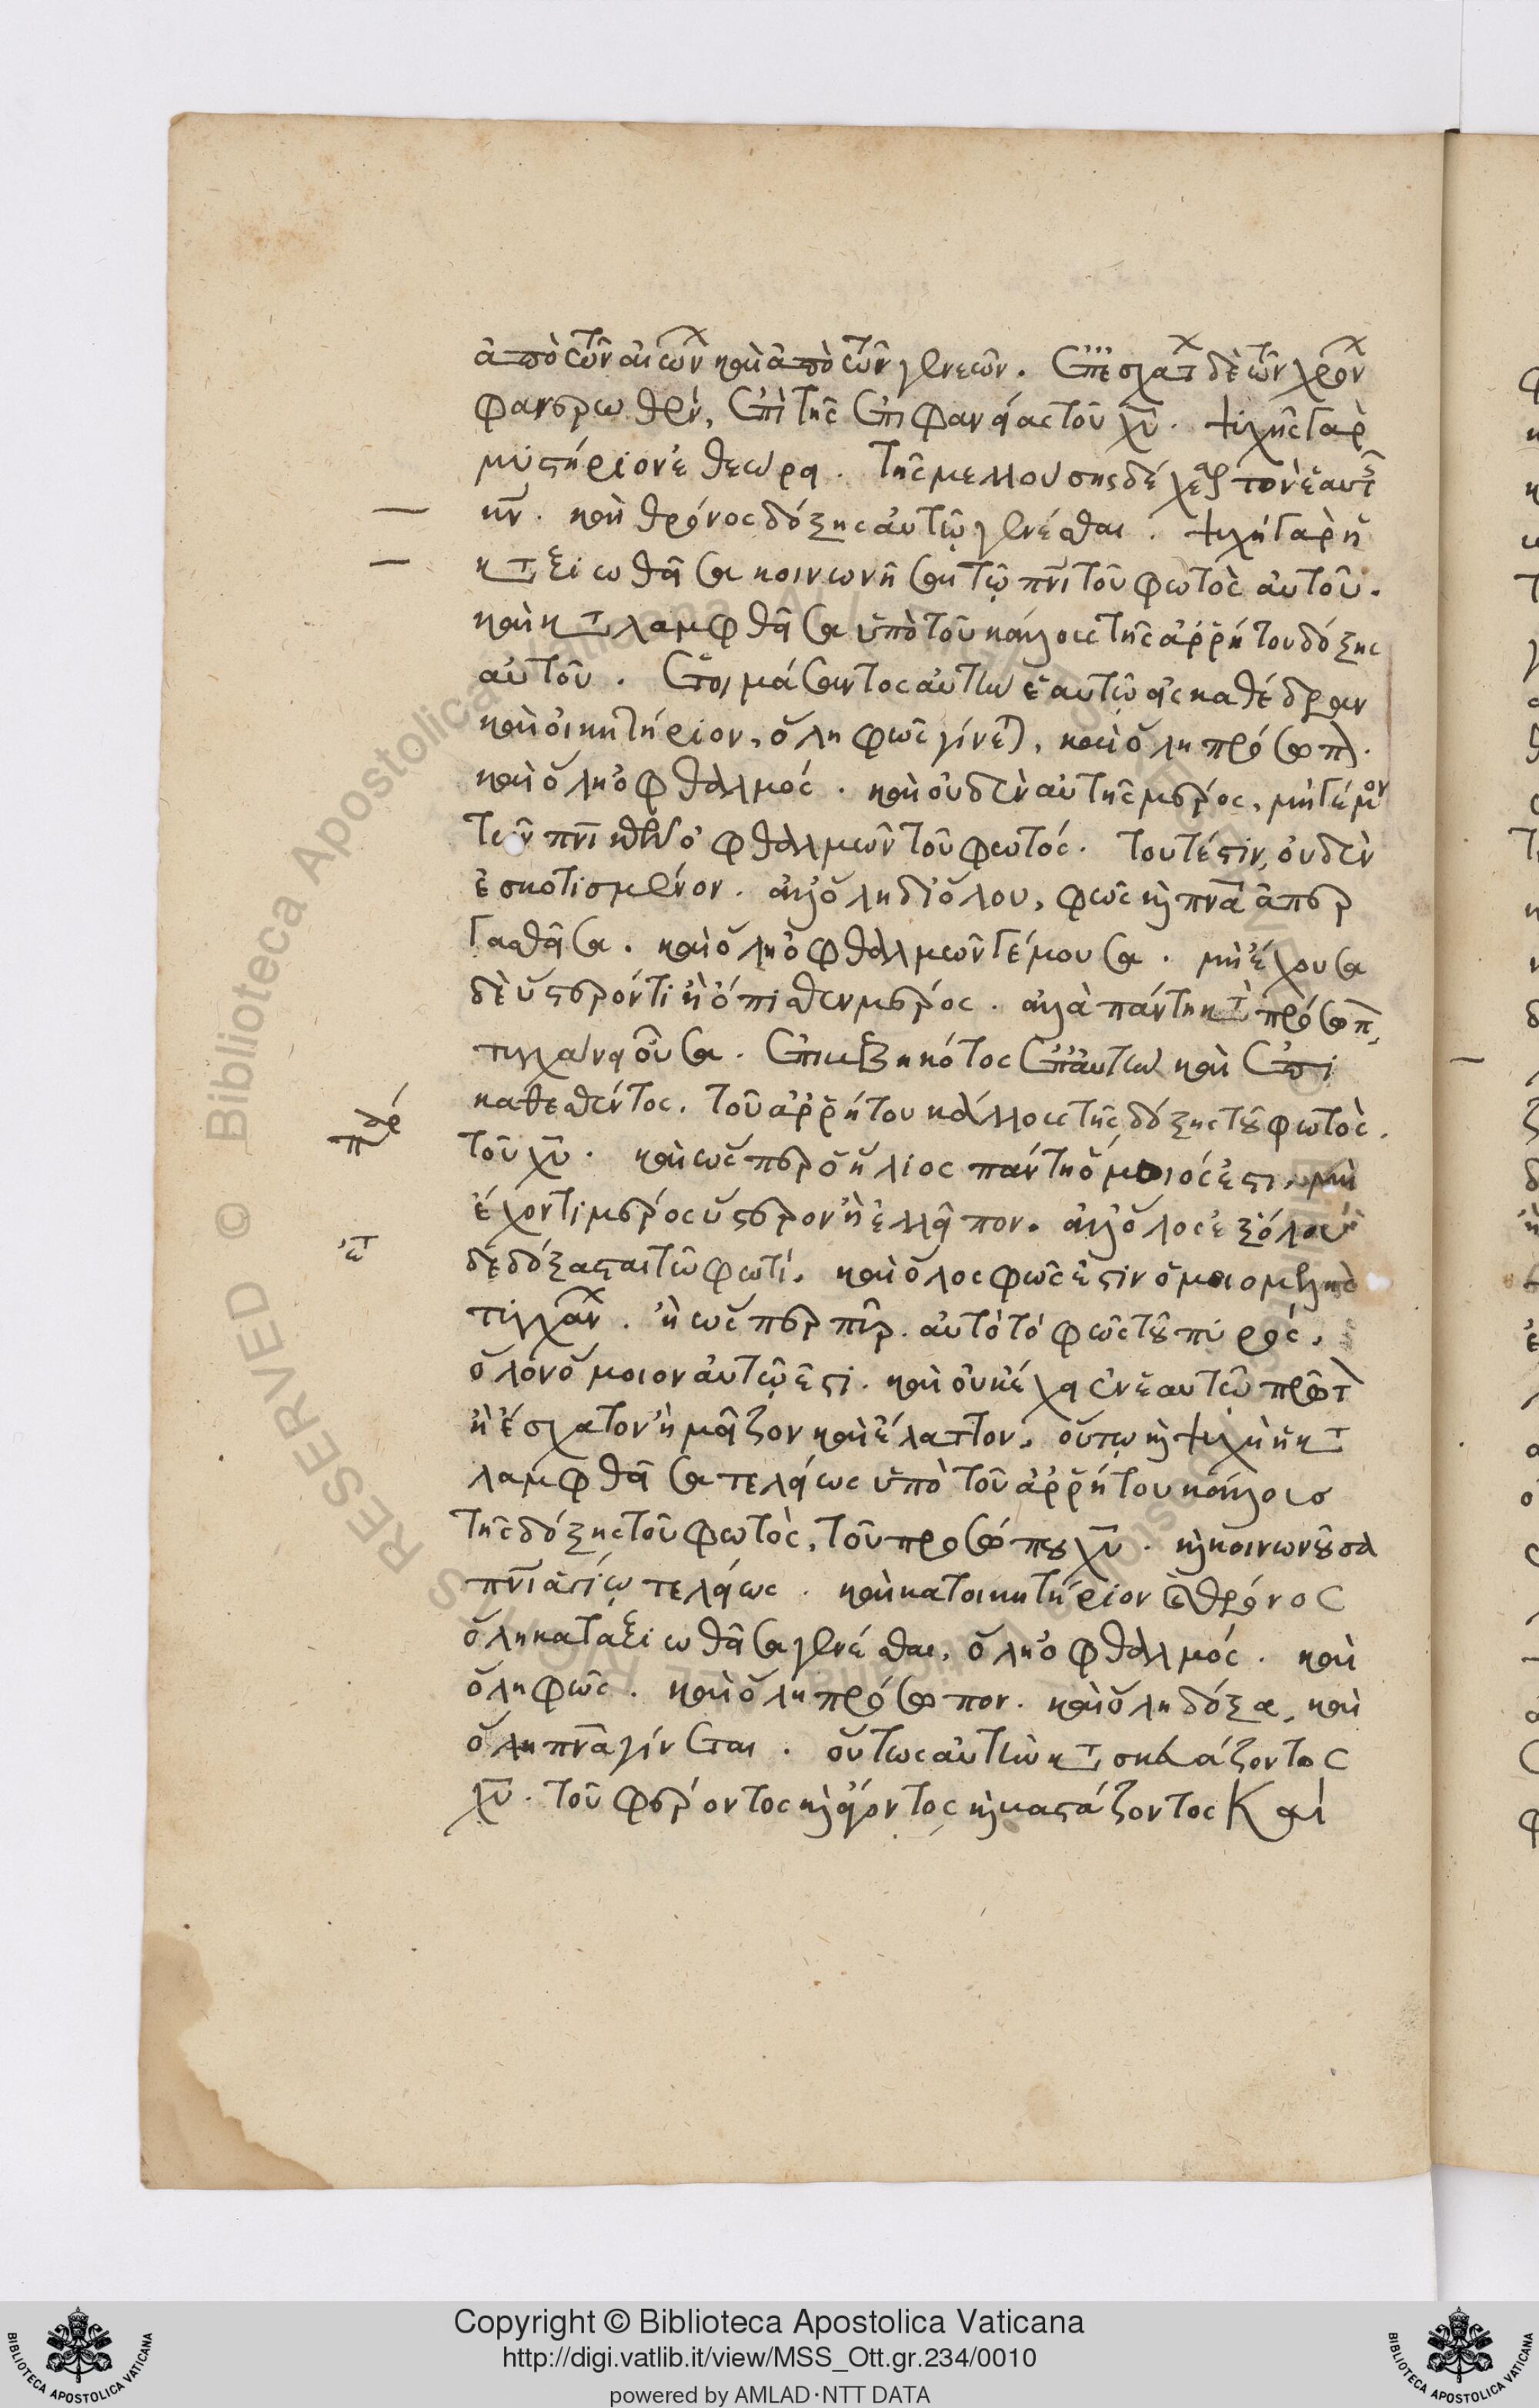 ἀπὸ τῶν αἰώνων καὶ ἀπὸ τῶν γενεῶν. ἐπ' ἐσχάτων δὲ τῶν χρόνων
φανερωθέν, ἐπὶ τῆς ἐπιφανείας τοῦ χυ. ψυχῆς γὰρ
μυστήριον ἐθεώρει. τῆς μελλούσης δέχεσθαι τὸν ἑαυτῆς
κν. καὶ θρόνος δόξης αὐτῷ γενέσθαι. ψυχὴ γὰρ ἡ
καταξιωθεῖσα κοινωνῆσαι τῷ πνι τοῦ φωτὸς αὐτοῦ.
καὶ καταλαμφθεῖσα ὑπὸ τοῦ κάλλους τῆς ἀρρήτου δόξης
αὐτοῦ. ἑτοιμάσαντος αὐτὴν ἑαυτῷ εἰς καθέδραν
καὶ οἰκητήριον, ὅλη φῶς γίνεται, καὶ ὅλη πρόσωπον.
καὶ ὅλη ὀφθαλμός. καὶ οὐδὲν αὐτῆς μέρος, μὴ γέμον
τῶν πνικῶν ὀφθαλμῶν τοῦ φωτός. τουτέστιν, οὐδὲν
ἐσκοτισμένον. ἀλλ' ὅλη δι' ὅλου, φῶς καὶ πνα ἀπερ
γασθεῖσα. καὶ ὅλη ὀφθαλμῶν γέμουσα. μὴ ἔχουσα
δὲ ὕστερόν τι ἢ ὄπισθεν μέρος. ἀλλὰ πάντη κατὰ πρόσωπον
τυγχάνουσα. ἐπιβεβηκότος ἐπ' αὐτὴν καὶ ἐπι
καθεσθέντος. τοῦ ἀρρήτου κάλλους τῆς δόξης τοῦ φωτὸς.
τοῦ χυ. καὶ ὥσπερ ὁ ἥλιος πάντη ὅμοιός ἐστι, μὴ
ἔχον τι μέρος ὕστερον ἢ ἐλλεῖπον. ἀλλ' ὅλος ἐξ ὅλου
δεδόξασται τῷ φωτί. καὶ ὅλος φῶς ἐστιν ὁμοιομερὴς
τυγχάνων. ἢ ὥσπερ πῦρ. αὐτὸ τὸ φῶς τοῦ πυρός.
ὅλον ὅμοιον αὐτῷ ἐστι. καὶ οὐκ ἔχει ἐν ἑαυτῷ πρῶτον
ἢ ἔσχατον ἢ μεῖζον καὶ ἔλαττον. οὕτω καὶ ψυχὴ ἡ κατα
λαμφθεῖσα τελείως ὑπὸ τοῦ ἀρρήτου κάλλους
τῆς δόξης τοῦ φωτὸς, τοῦ προσώπου χυ. καὶ κοινωνοῦσα
πνι ἁγίῳ τελείως. καὶ κατοικητήριον καὶ θρόνος
ὅλη καταξιωθεῖσα γενέσθαι, ὅλη ὀφθαλμός. καὶ
ὅλη φῶς. καὶ ὅλη πρόσωπον. καὶ ὅλη δόξα, καὶ
ὅλη πνα γίνεται. οὕτως αὐτὴν κατασκευάζοντος
χυ. τοῦ φέροντος καὶ ἄγοντος καὶ βαστάζοντος καὶ
Copyright © Biblioteca Apostolica Vaticana
http://digi.vatlib.it/view/MSS_Ott.gr.234/0010
powered by AMLAD·NTT DATA